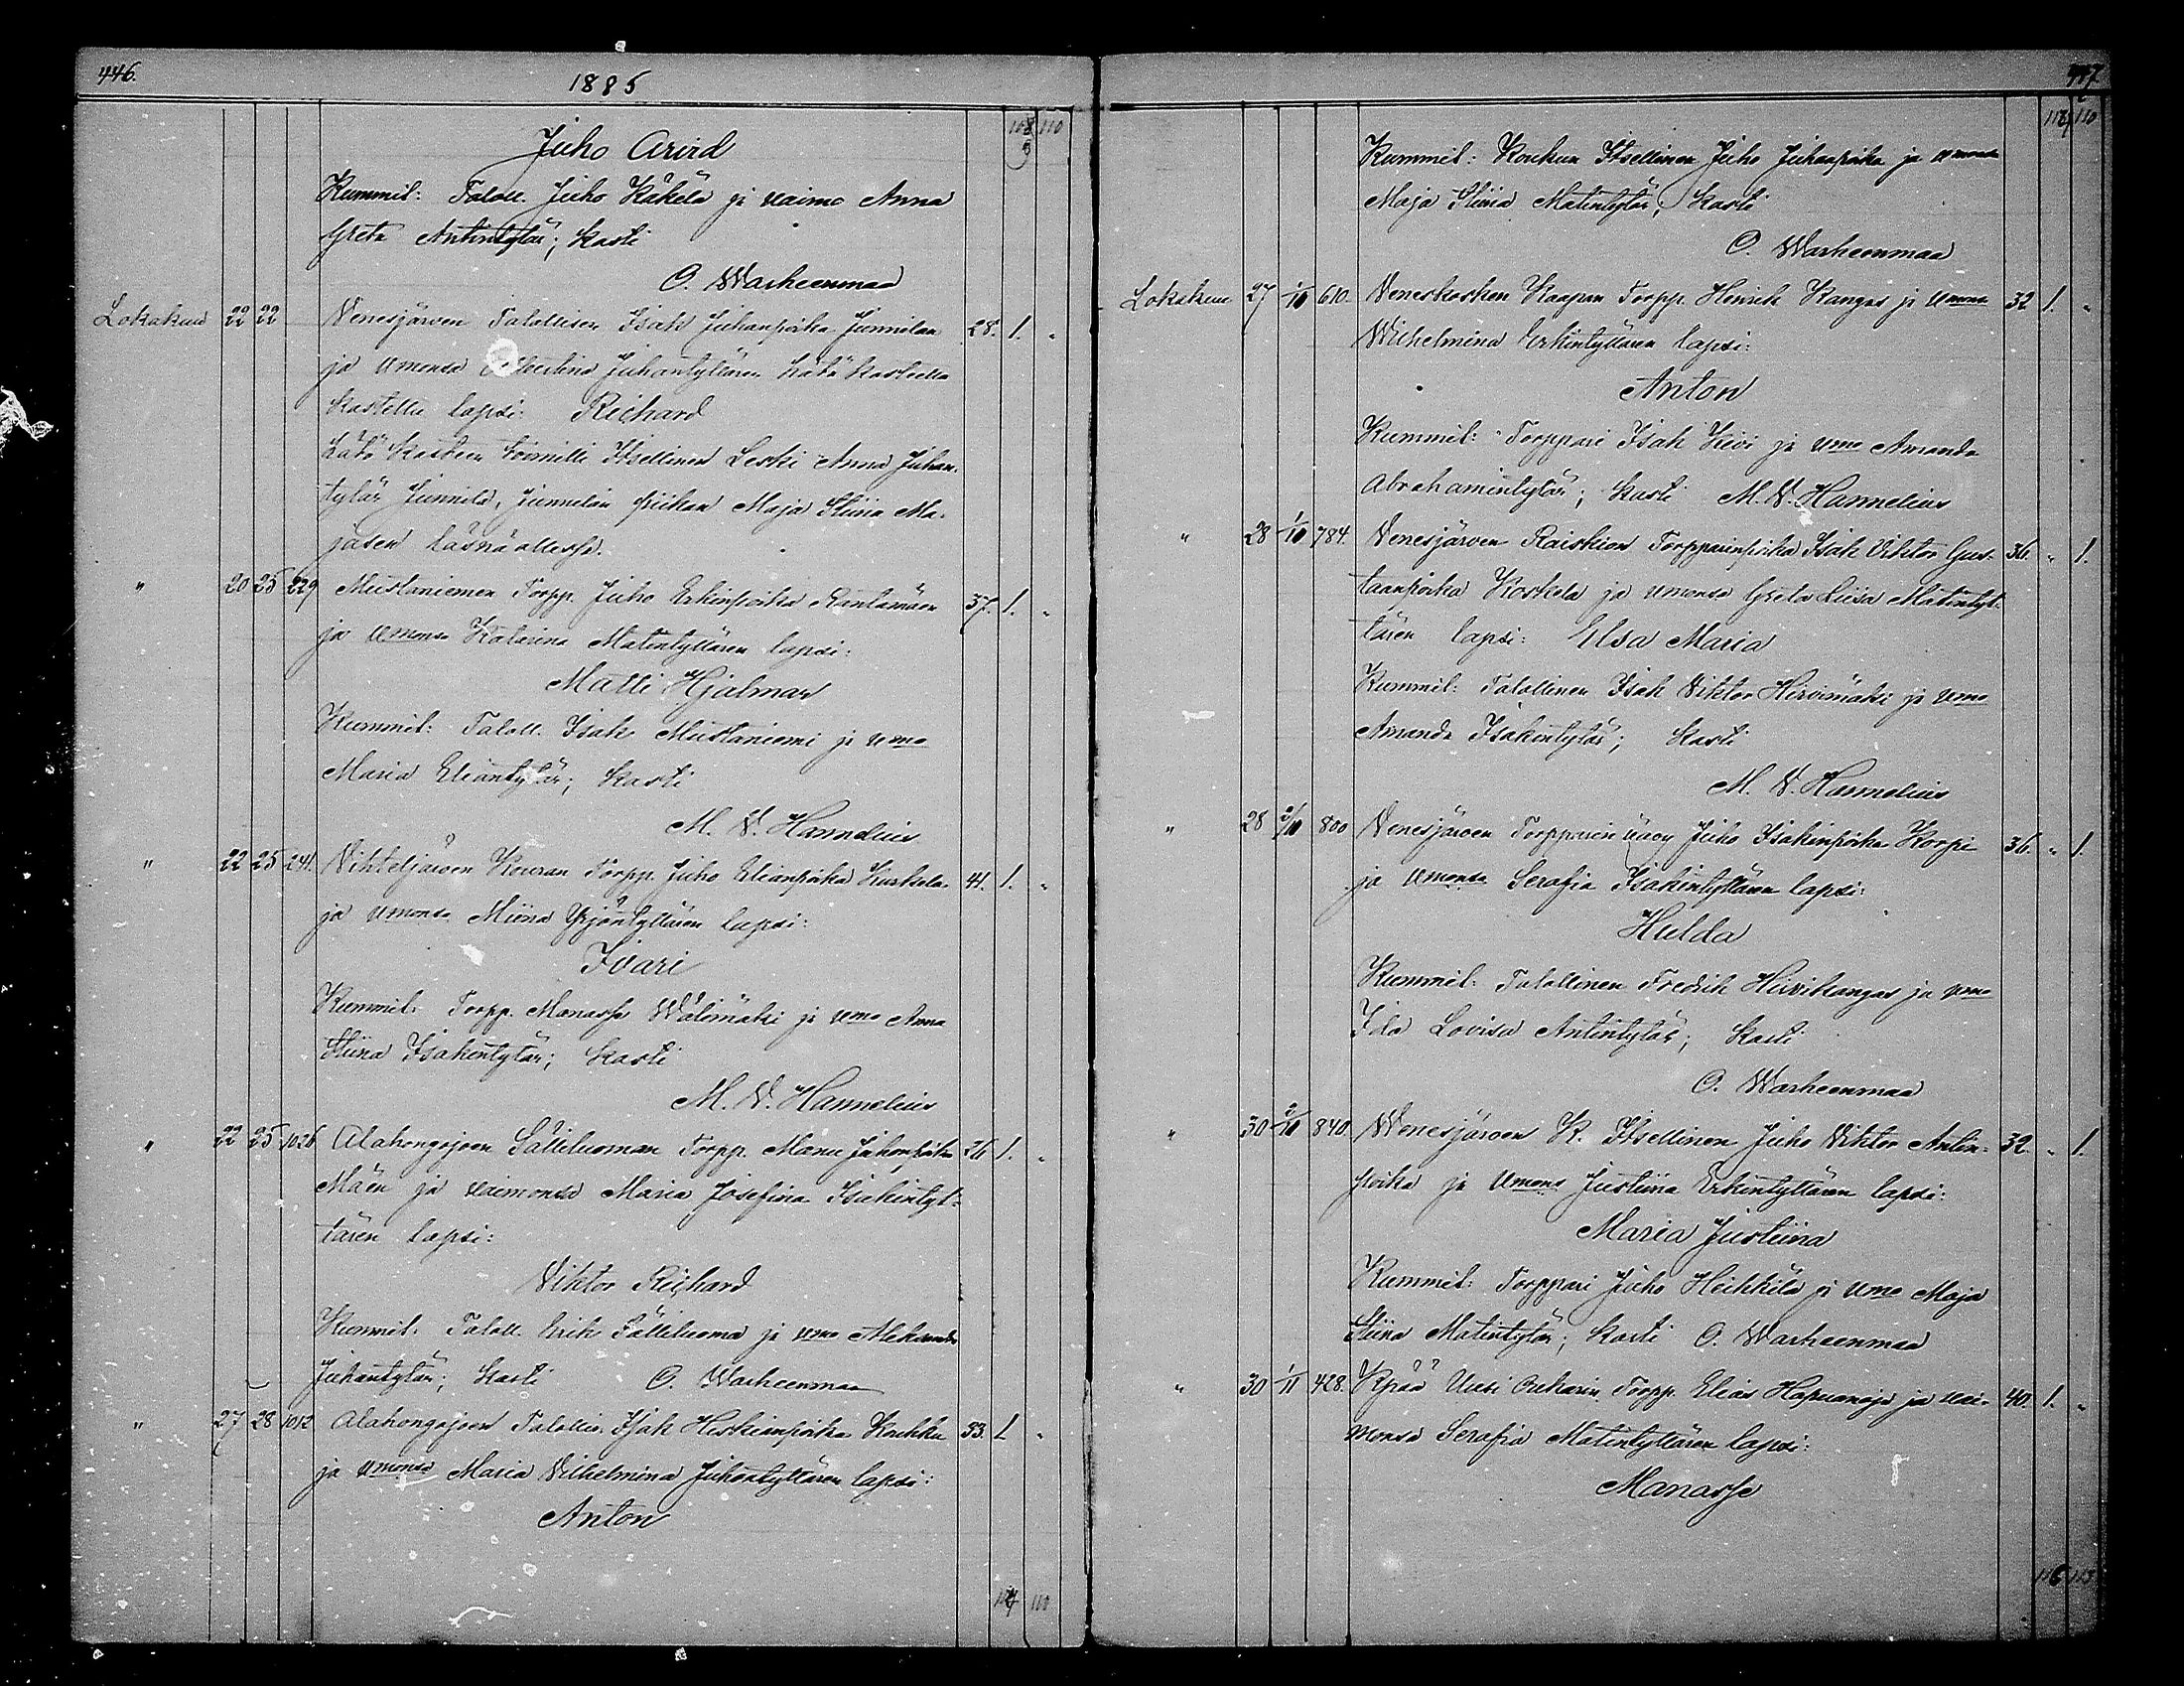 446.
1885
110
Juho Arvid
Kummit: Taloll. Juho Käkelä ja vaimo Anna
Greta Antintytär; kasti
O. Warheenmaa
Lokakuu 22 22 Venesjärven Talollisen Isak Juhanpoika Junnilan 28. 1. "
ja vmonsa Juhantyttären hätä kasteella
kastettu lapsi: Richard
hätä kasteen toimitti Itsellinen Leski Anna Juhan-
tytär Junnila, Junnilan piikan Maja Stiina Ma-
jasen läsnäollessa.
" 20 25 229 Mustaniemen Torpp. Juho Erkinpoika Rantamäen 37. 1. "
ja vmonsa Katarina Matintyttären lapsi:
Matti Hjalmar
Kummit: Taloll. Isak Mustaniemi ja vmo
Maria Eliantytär; kasti
M. V. Hannelius
" 22 25 241. Vihteljärven Kouran Torpp. Juho Elianpoika Kuskela 41. 1. "
ja vmonsa Miina Yrjöntyttären lapsi:
Ivari
Kummit: Torpp. Manasse Wälimäki ja vmo Anna
Stiina Isakintytär; kasti
M. V. Hannelius
" 22 25 1026 Alahongojoen Sälliluoman Torpp. Manu Juhonpoika 26 1. "
Mäen ja vaimonsa Maria Josefina Isakintyt-
tären lapsi:
Viktor Richard
Kummit: Taloll. Erik Sälliluoma ja vmo Aleksandra
Juhantytär; kasti O. Warheenmaa
" 27 28 1012 Alahongojoen Talollis. Isak Heskianpoika Koukku 33. 1. "
ja vmonsa Maria Vilhelmina Juhontyttären lapsi:
Anton
110
447
110
Kummit: Koukun Itsellinen Juho Juhanpoika ja vmonsa
Maja Stiina Matintytär; kasti
O. Warheenmaa
Lokakuu 27 1/10 610. Veneskosken Kaapun Torpp. Henrik Kangas ja vmonsa 32 1. "
Wilhelmina Erkintyttären lapsi:
Anton
Kummit: Torppari Isak Kivi ja vmo Amanda
Abrahamintytär; kasti M. V. Hannelius
" 28 1/10 784. Venesjärven Raiskion Torpparinpoika Isak Viktor Gus- 36. " 1.
taanpoika Koskela ja vmonsa Greta Liisa Matintyt-
tären lapsi: Elsa Maria
Kummit: Talollinen Isak Viktor Hirvimäki ja vmo
Amanda Isakintytär; kasti
M. V. Hannelius
" 28 2/10 800 Venesjärven Torpparin vävy Juho Isakinpoika Korpi 36. " 1.
ja vmonsa Serafia Isakintyttären lapsi:
Hulda
Kummit: Talollinen Fredrik Hirvikangas ja vmo
Ida Lovisa Antintytär; kasti
O. Warheenmaa
" 30 2/10 840. Wenesjärven K. Itsellinen Juho Viktor Antin- 32. " 1.
poika ja vmons Justiina Erkintyttären lapsi:
Maria Justiina
Kummit: Torppari Juho Heikkilä ja vmo Maja
Stiina Matintytär; kasti O. Warheenmaa
" 30 1/11 428. Kpää Uusi Torpp. Elias Hapuanoja ja vai- 40. 1. "
monsa Serafia Matintyttären lapsi:
Manasse